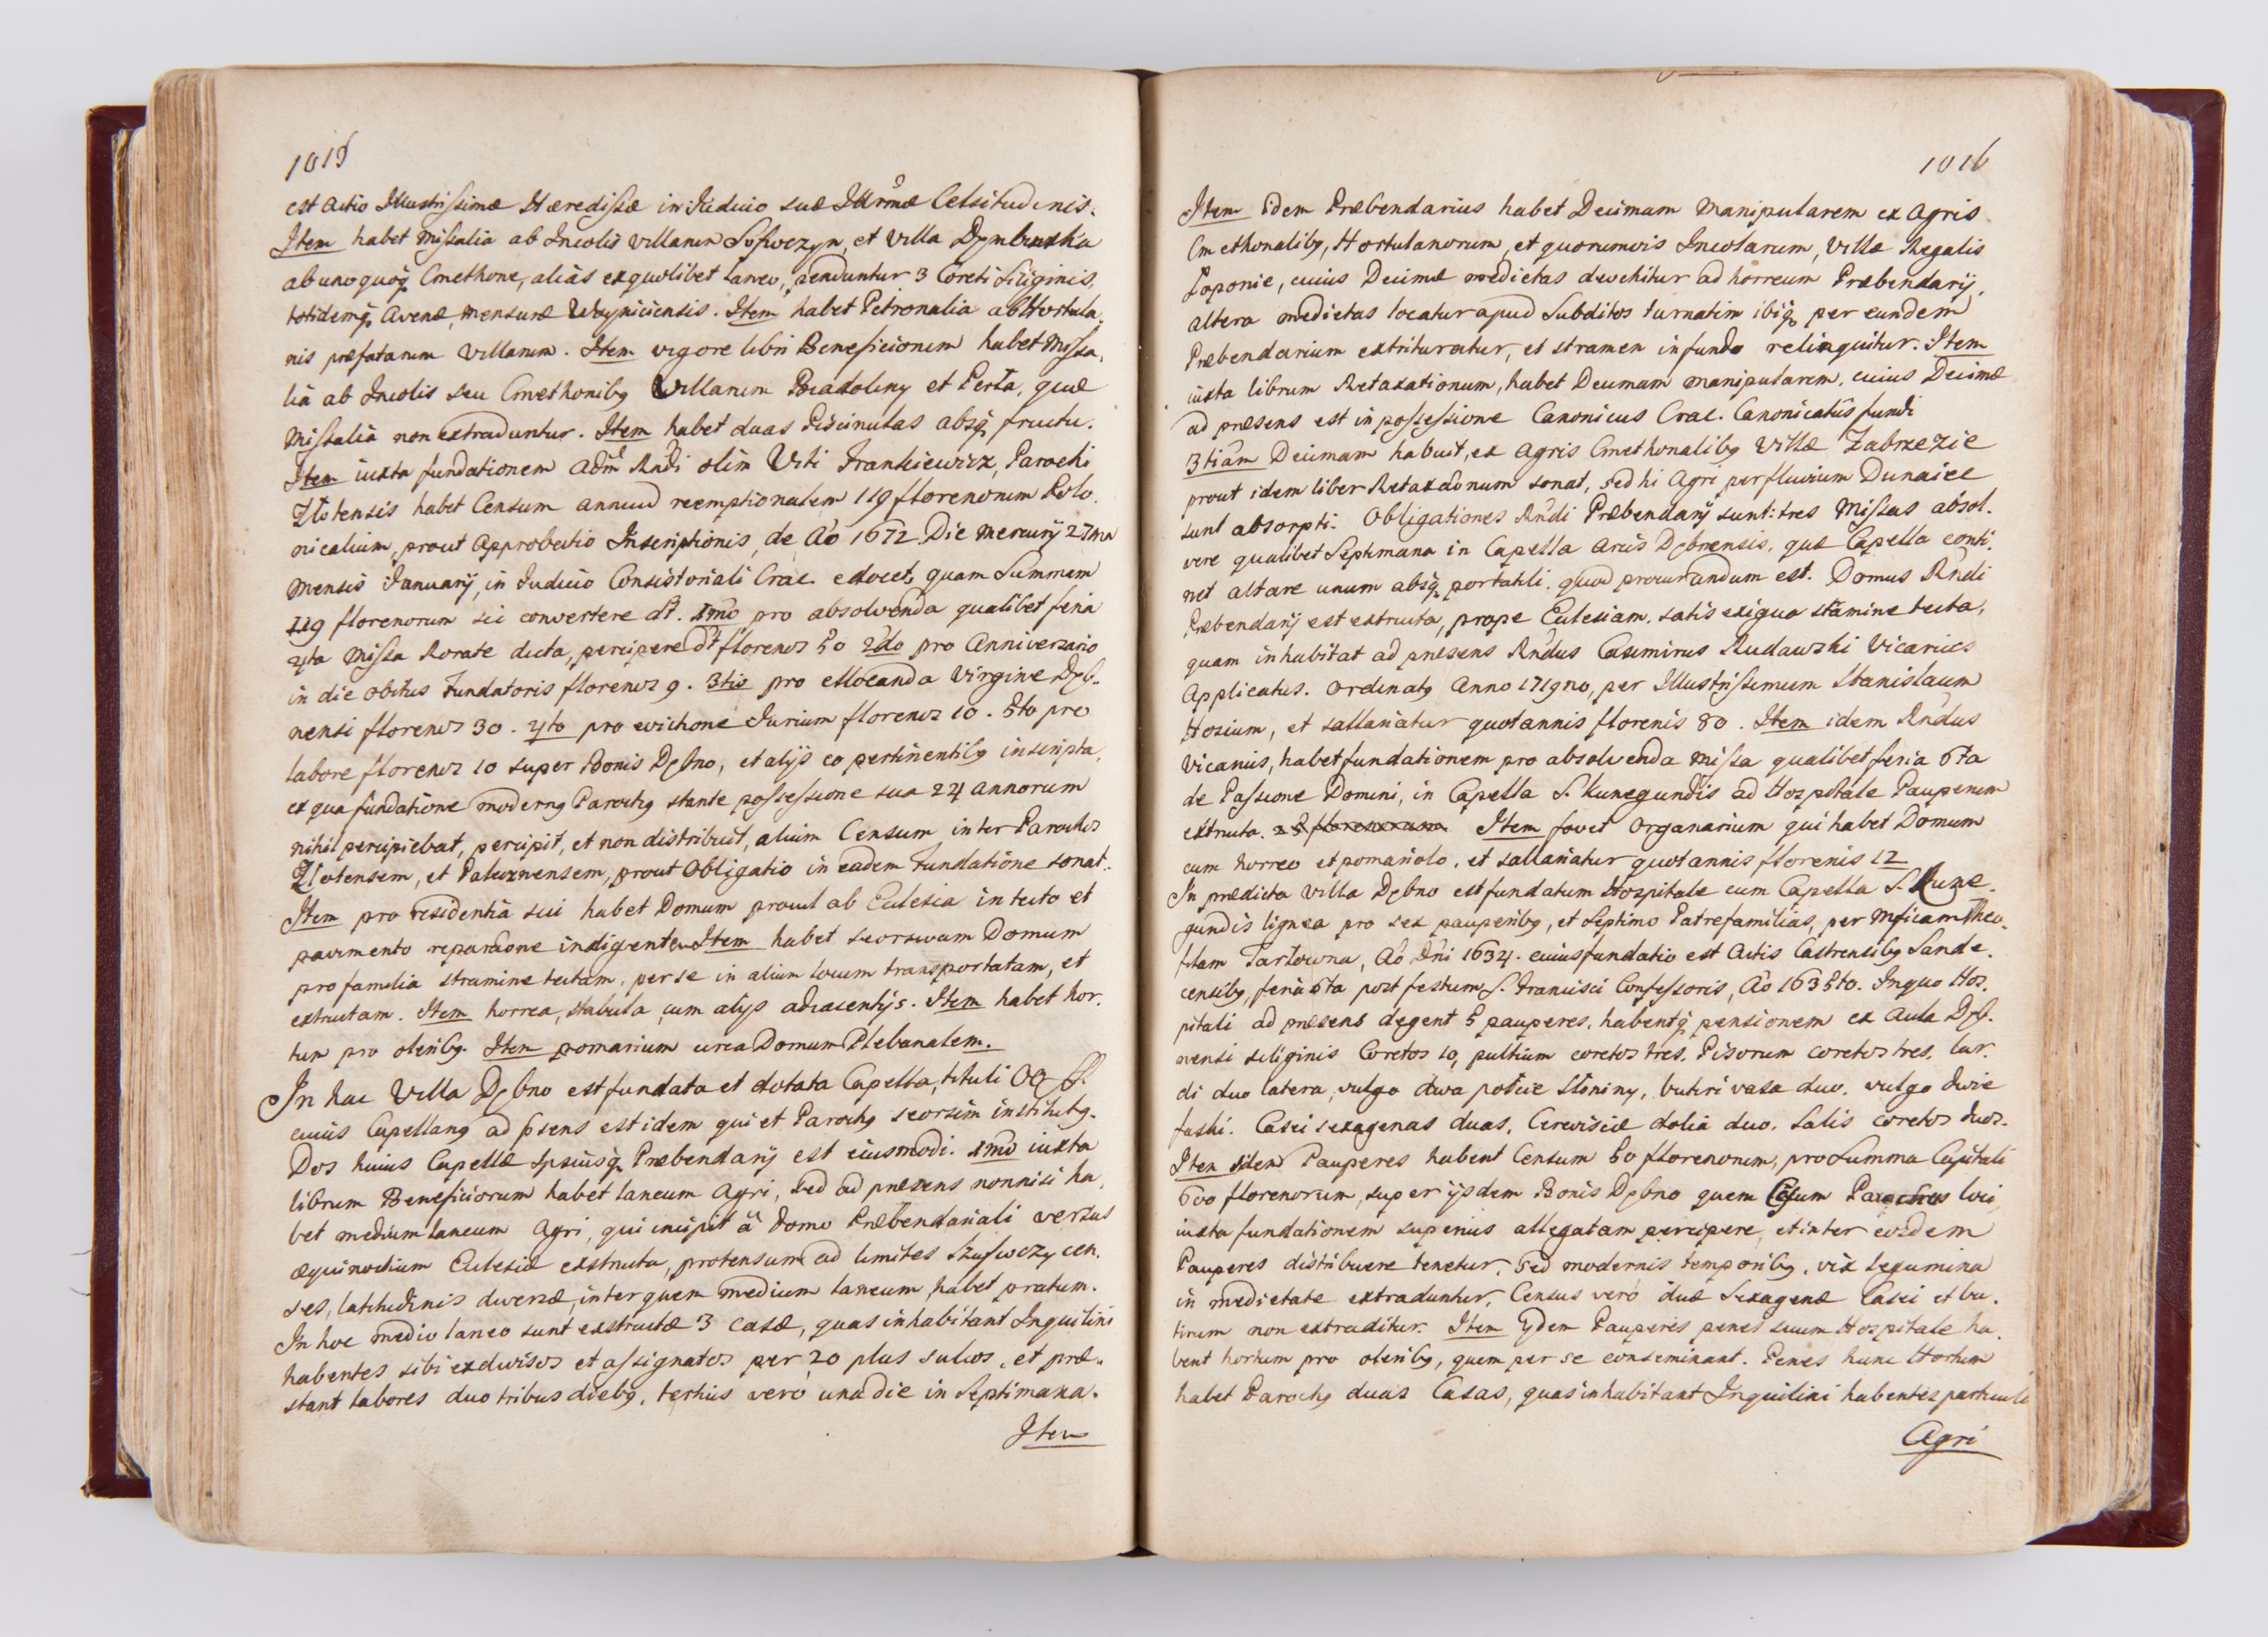 1015
est actio Illustrissimæ Hæredissæ in Iudicio suæ Illrmæ Celsitudinis.
Item habet missalia ab Incolis villarum Sufwczyn, et villa Dymbrwska
ab unoquoq Cmethone, aliàs ex quolibet Laneo, rendūntur 3 Coreti siliginis,
totidemq Avenæ, mensuræ Woyniciensis. Item habet Petronalia ab Hortula,
nis præfatarum villarum. Item vigore libri Beneficiorum habet Missa,
lia ab Incolis seu Cmethonibg Villarum Biadoliny et Perła, quæ
Missalia non extraduntur. Item habet duas Piscinulas absq fructu.
Item iuxta fundationem Adm Rndi olim Viti Frankiewicz, Parochi
Złotensis habet Censum annuū reemptionalem 119 florenorum Polo.
nicalium, prout Approbatio Inscriptionis, de Ao 1672 Die Mercurij 27ma
Mensis Ianuarij, in Iudicio Consistoriali Crac. edocet, quam Summam
119 florenorum sic convertere dt. 1mo pro absolvenda qualibet feria
4ta Missa Rorate dicta, percipere dt florenos 50 2do pro Anniversario
in die obitus Fundatoris florenos 9. 3tio pro ellocanda Virgine Dęb-
nensi florenos 30. 4to pro evictione Iurium florenos 10. 5to pro
labore florenos 10 super Bonis Dębno, et alijs eo pertinentibg inscripta,
ex qua fundatione moderng Parochg stante possessione sua 24 annorum
nihil percipiebat, percipit, et non distribuit, alium Censum inter Parochos
Złotensem, et Paleznensem, prout Obligatio in eadem Fundatione sonat.
Item pro residentia sui habet Domum procul ab Eclesia in tecto et
pavimento reparaone indigentem Item habet seorsivam Domum
pro familia stramine tectam, per se in alium locum transportatam, et
extructam. Item horrea, stabula, cum alijs adiacentijs. Item habet hor.
tum pro oleribg. Item pomarium circa Domum Plebanalem.
In hac Villa Dębno est fundata et dotata Capella, tituli OO SS.
cuius Capellang ad psens est idem qui et Parochg seorsim institutg.
Dos huius Capellæ ipsiusq Præbendarij est eiusmodi. 1mo iuxta
librum Beneficiorum habet laneum Agri, sed ad præsens nonnisi ha,
bet medium laneum Agri, qui incipit à domo Præbendariali versus
æquinoctium Eclesiæ exstructa, protensum ad limites Szufwczycen.
ses, latitudinis diversæ, inter quem medium laneum habet pratum.
In hoc medio laneo sunt exstructæ 3 casæ, quas inhabitant Inquilini
habentes sibi exdivisos et assignatos per 20 plus sulcos, et præ-
stant labores duo tribus diebg, tertius verò una die in Septimana.
Item
1016
Item idem Præbendarius habet Decimam manipularem ex Agris
Cmethonalibg, Hortulanorum, et quorumvis Incolarum, Villæ Regalis
Łoponie, cuius Decimæ medietas devehitur ad horreum Præbendarij,
altera medietas locatur apud Subditos turnatim ibiq per eundem
Præbendarium extrituratur, et stramen in fundo relinquitur. Item
iuxta librum Retaxationum, habet Decimam manipularem, cuius Decimæ
ad præsens est in possessione Canonicus Crac. Canonicatûs fundi
3tiam Decimam habuit, ex agris Cmethonalibg Villæ Zabrzezie
prout idem liber Retaxaonum sonat, sed hi Agri per fluvium Dunaiec
sunt absorpti. Obligationes Rndi Præbendarij sunt: tres Missas absol.
vere qualibet Septimana in Capella Arcis Dębnensis, quæ Capella conti.
net altare unum absq portatili, quod procurandum est. Domus Rndi
Præbendarij est extructa, prope Eclesiam, satis exigua stamine tecta,
quam inhabitat ad præsens Rndus Casimirus Rudawski Vicarius
Applicatus. Ordinatg Anno 1719no, per Illustrissimum Stanislaum
Hosium, et sallariatur quotannis florenis 80. Item idem Rndus
Vicarius, habet fundationem pro absolvenda Missa qualibet feria 6ta
de Passione Domini, in Capella S. Kunegundis ad Hospitale Pauperum
extructa. 25 florenorum Item fovet Organarium qui habet Domum
cum horreo et pomariolo, et sallariatur quotannis florenis 12
In prædicta villa Dębno est fundatum Hospitale cum Capella S. Kune-
gundis lignea pro sex pauperibg, et Septimo Patrefamilias, per Mficam Theo-
filam Tarłowna, Ao Dni 1634. cuius fundatio est Actis Castrensibg Sande.
censibg, feria 6ta post festum S. Francisci Confessoris, Ao 1635to. In quo Hos,
pitali ad præsens degent 5 pauperes, habentq pensionem ex Aula Dęb-
nensi siliginis Coretos 10, pultium coretos tres, Pisorum coretos tres, lar.
di duo latera, vulgo dwa połcie Słoniny, butiri vasa duo, vulgo dwie
faski. Casei sexagenas duas, Cerevisiæ dolia duo, Salis coretos duos.
Item iidem Pauperes habent Censum 50 florenorum, pro Summa Capitali
600 florenorum, super ijsdem Bonis Dębno quem Csum Parochus loci,
iuxta fundationem superius allegatam percipere, et inter eosdem
Pauperes distribuere tenetur, sed modernis temporibg, vix legumina
in medietate extraduntur, Census verò duæ Sexagenæ Casei et bu.
tirum non extraditur. Item ijdem Pauperes penes suum Hospitale ha.
bent hortum pro oleribg, quem per se conseminant. Penes hunc Hortum
habet Parochg duas Casas, quas inhabitant Inquilini habentes particuli
Agri